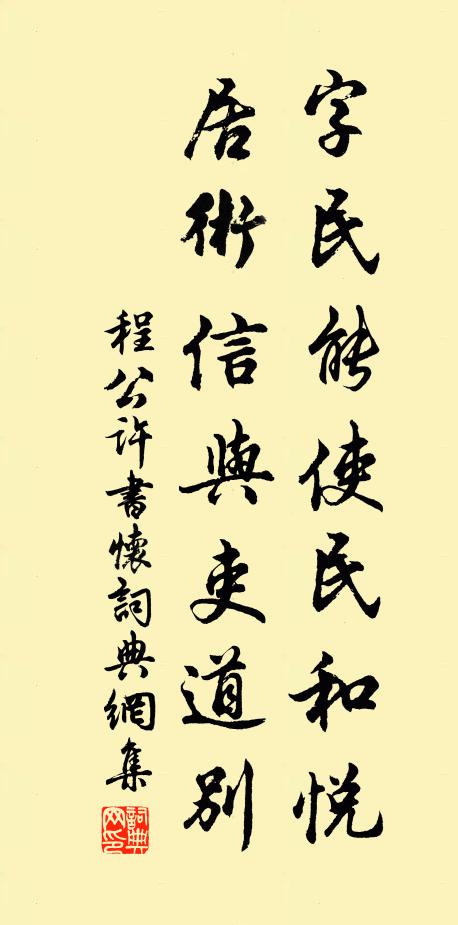 字民能使民和悦
居術信與吏道別
程公許書懷詞典網集
詞典網印